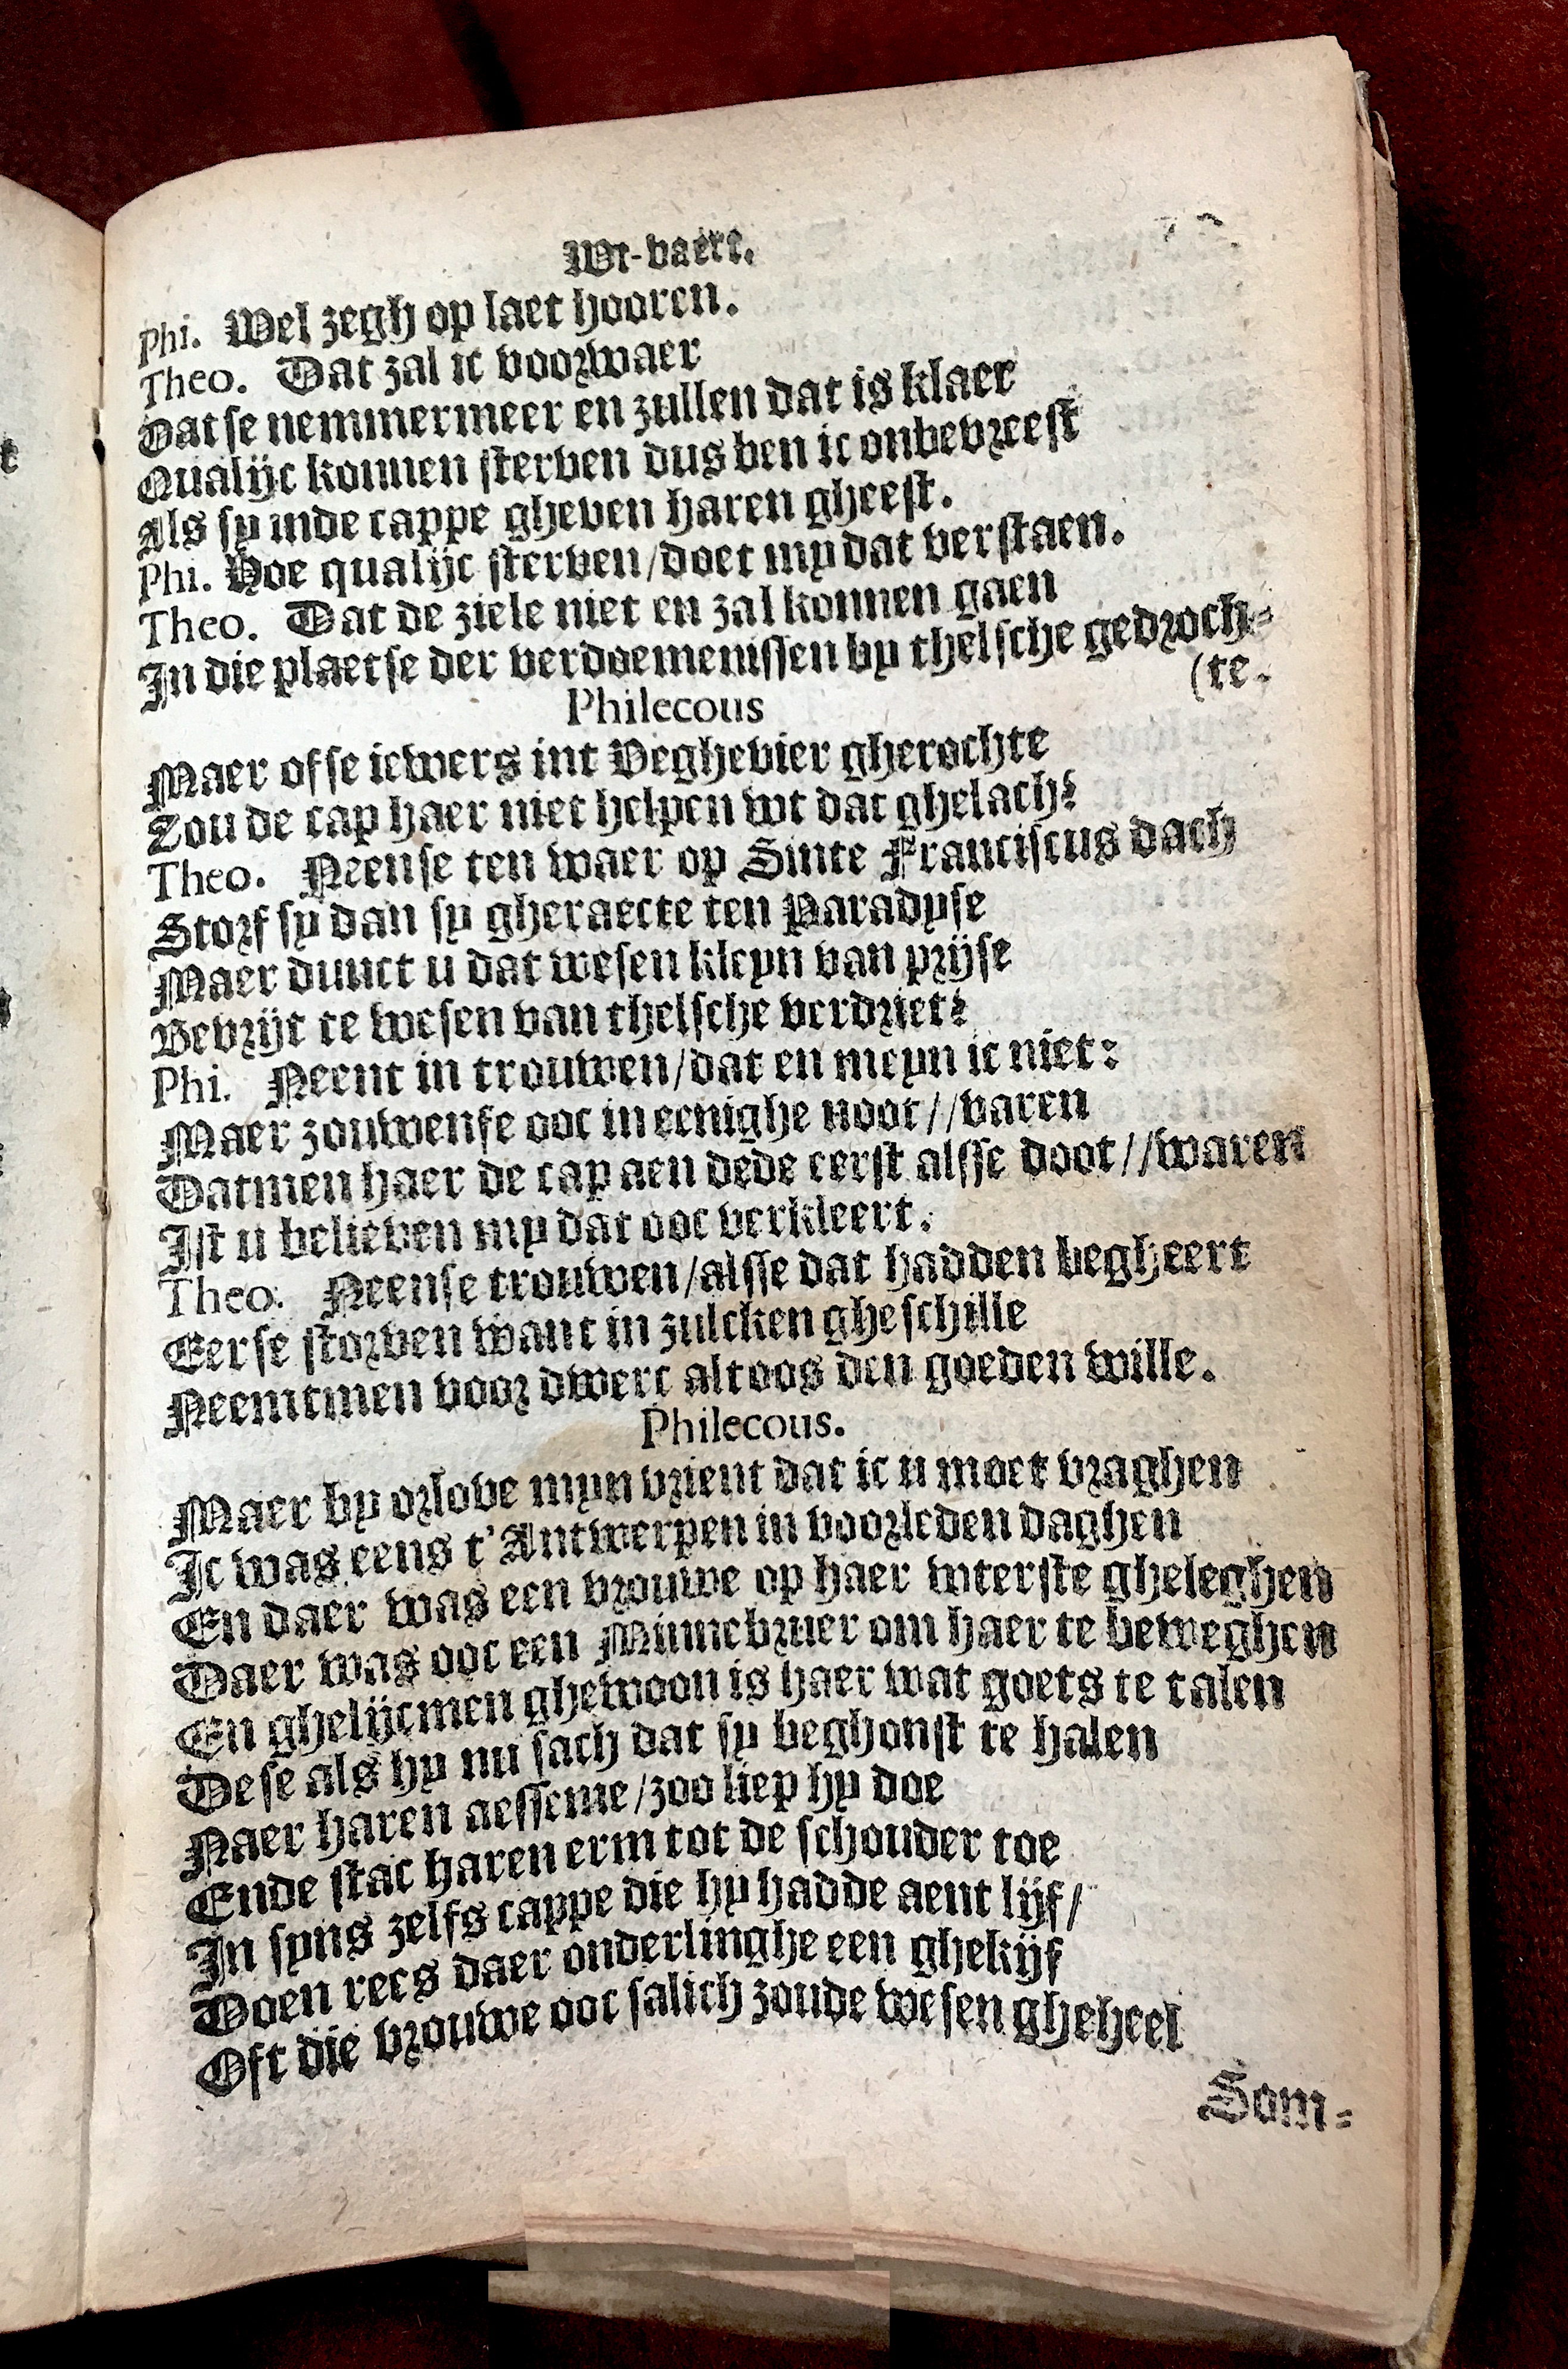 Wt-vaert.
Phi. Wel zegh op laet hooren.
Theo. Dat zal ic voorwaer
Datse nemmermeer en zullen dat is klaer
Qualijc konnen sterven dus ben ic onbevreest
Als sy inde cappe gheven haren gheest.
Phi. Hoe qualijc sterven/doet my dat verstaen.
Theo. Dat de ziele niet en zal konnen gaen
In die plaetse der verdoemenissen by thelsche gedroch-
(te.
Philecous
Maer ofse iewers int Veghevier gherochte
Zou de cap haer niet helpen wt dat ghelach?
Theo. Neense ten waer op Sinte Franciscus dach
Storf sy dan sy gheraecte ten Paradyse
Maer dunct u dat wesen kleyn van prijse
Bevrijt te wesen van thelsche verdriet?
Phi. Neent in trouwen/dat en meyn ic niet:
Maer zouwense ooc in eenighe noot//varen
Datmen haer de cap aen dede eerst alsse doot//waren
Ist u believen my dat ooc verkleert.
Theo. Neense trouwen/alsse dat hadden begheert
Eerse storven want in zulcken gheschille
Neemtmen voor dwerc altoos den goeden wille.
Philecous.
Maer by orlove myn vrient dat ic u moet vraghen
Ic was eens t'Antwerpen in voorleden daghen
En daer was een vrouwe op haer wterste gheleghen
Daer was ooc een Minnebruer om haer te beweghen
En ghelijcmen ghewoon is haer wat goets te talen
Dese als hy nu sach dat sy beghonst te halen
Naer haren aesseme/zoo liep hy doe
Ende stac haren erm tot de schouder toe
In syns zelfs cappe die hy hadde aent lijf/
Doen rees daer onderlinghe een ghekijf
Oft die vrouwe ooc salich zoude wesen gheheel
Som-